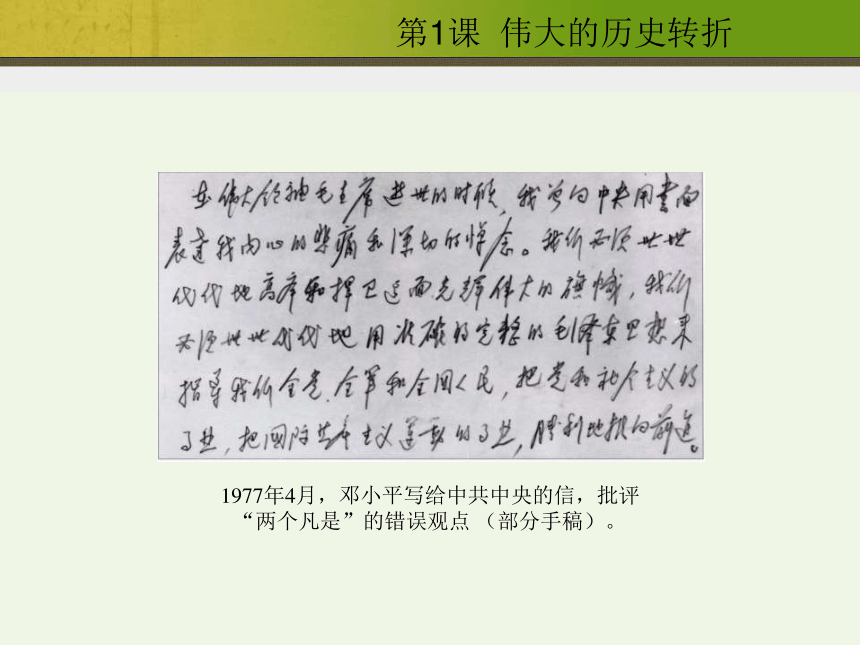 第1课 伟大的历史转折
在伟大领袖毛主席逝世的时候，我曾向中央用书面
表达我内心的悲痛和深切的悼念。我们必须世世
代代地高举和捍卫这面光辉伟大的旗帜，我们
必须世世代代地用准确的完整的毛泽东思想来
指导我们全党、全军和全国人民，把党和社会主义的
事业，把国际共产主义运动的事业，胜利地推向前进。
1977年4月，邓小平写给中共中央的信，批评
“两个凡是”的错误观点 （部分手稿）。